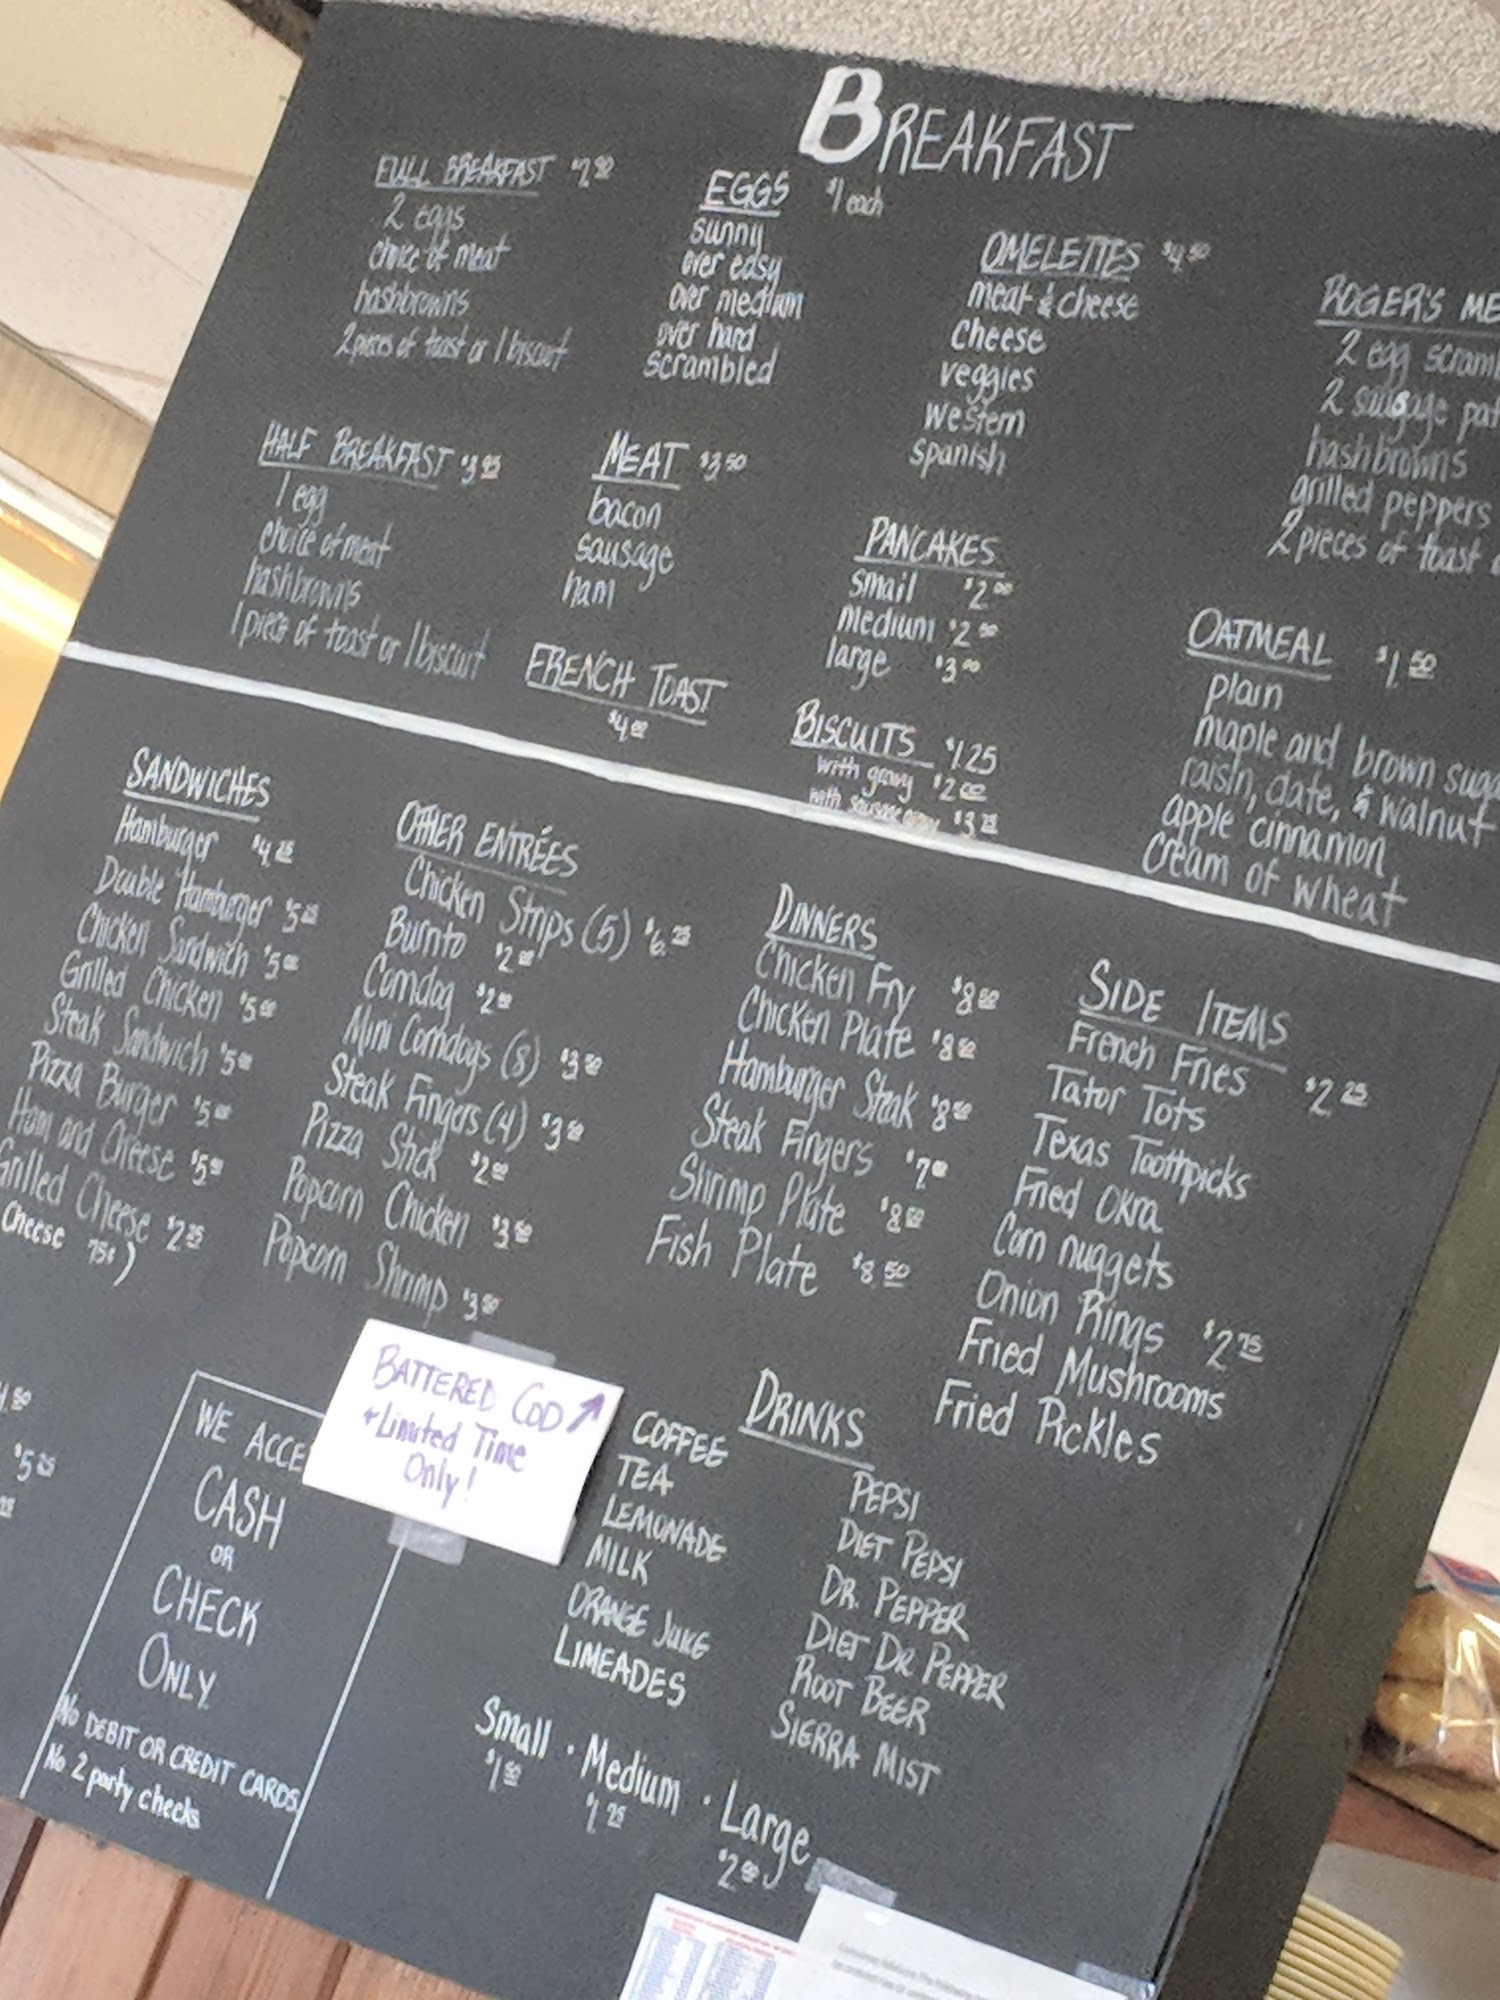 BREAKFAST
FULL BREAKFAST
2 eggs
choice of meat
hashbrowns
2 pieces of toast or 1 biscuit
EGGS $1 each
sunny
over easy
over medium
over hard
scrambled
OMELETTES $4.50
meat & cheese
cheese
veggies
western
spanish
ROGER'S
2 egg
2 sausage
hashbrowns
grilled peppers
2 pieces of toast
HALF BREAKFAST
1 egg
choice of meat
hashbrowns
1 piece of toast or 1 biscuit
MEAT $3.50
bacon
sausage
ham
FRENCH TOAST
$4.00
PANCAKES
small $2.00
medium $2.50
large $3.00
BISCUITS $1.25
with gravy $2.00
with sausage gravy
OATMEAL $1.50
plain
maple and brown
raisin, date, & walnut
apple cinnamon
cream of wheat
SANDWICHES
Hamburger
Double Hamburger
Chicken Sandwich
Grilled Chicken
Steak Sandwich
Pizza Burger
Ham and Cheese
Grilled Cheese
Cheese 75¢)
OTHER ENTRÉES
Chicken Strips (5) $6.25
Burrito
Corndog
Mini Corndogs (8) $3.50
Steak Fingers (4)
Pizza Stick
Popcorn Chicken $3.50
Popcorn Shrimp
DINNERS
Chicken Fry
Chicken Plate
Hamburger Steak
Steak Fingers
Shrimp Plate
Fish Plate $8.50
SIDE ITEMS
French Fries $2.25
Tator Tots
Texas Toothpicks
Fried Okra
Corn nuggets
Onion Rings $2.75
Fried Mushrooms
Fried Pickles
BATTERED COD
Limited Time
Only!
WE ACCE
CASH
OR
CHECK
ONLY
NO DEBIT OR CREDIT CARDS
No 2 party checks
DRINKS
COFFEE
TEA
LEMONADE
MILK
ORANGE JUICE
LIMEADES
PEPSI
DIET PEPSI
DR. PEPPER
DIET DR PEPPER
ROOT BEER
SIERRA MIST
Small · Medium · Large